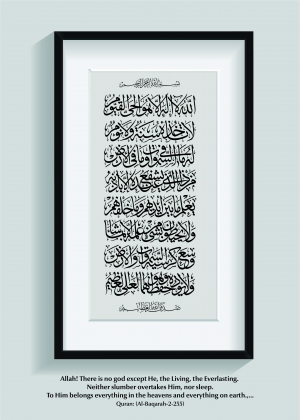 بسم الله الرحمن الرحيم
الله لا اله الا هو الحي القيوم
لا تاخذه سنة ولا نوم
له ما في السموات وما في الارض
من ذا الذي يشفع عنده الا باذنه
يعلم ما بين ايديهم وما خلفهم
ولا يحيطون بشيء من علمه الا بما شاء
وسع كرسيه السموات والارض
ولا يؤده حفظهما وهو العلي العظيم
Allah! There is no god except He, the Living, the Everlasting.
Neither slumber overtakes Him, nor sleep.
To Him belongs everything in the heavens and everything on earth.,...
Quran: (Al-Baqarah-2-255)